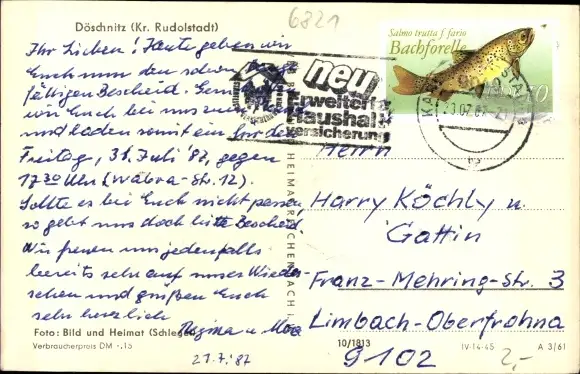 Döschnitz (Kr. Rudolstadt)
6821
Ihr Lieben! Heute geben wir
Euch nun den schon
fälligen Bescheid.
wir Euch bei uns zum
und laden somit ein für den
Freitag, 31. Juli '87, gegen
17 30 Uhr (Wabra-Str. 12).
Sollte es bei Euch nicht passen,
so gebt uns doch bitte Bescheid.
Wir freuen uns jedenfalls
bereits sehr auf unser Wieder-
sehen und grüßen Euch
sehr herzlich
Regina u.
21.7.'87
Foto: Bild und Heimat (Schlegel)
Verbraucherpreis DM -.15
HEIMAT REICHENBACH I.
neu
Erweiterte
Haushalt
versicherung
Salmo trutta f. fario
Bachforelle
10
Herrn
Harry Köchly u.
Gattin
Franz-Mehring-Str. 3
Limbach-Oberfrohna
9102
10/1813
IV-14-45
A 3/61
2,-